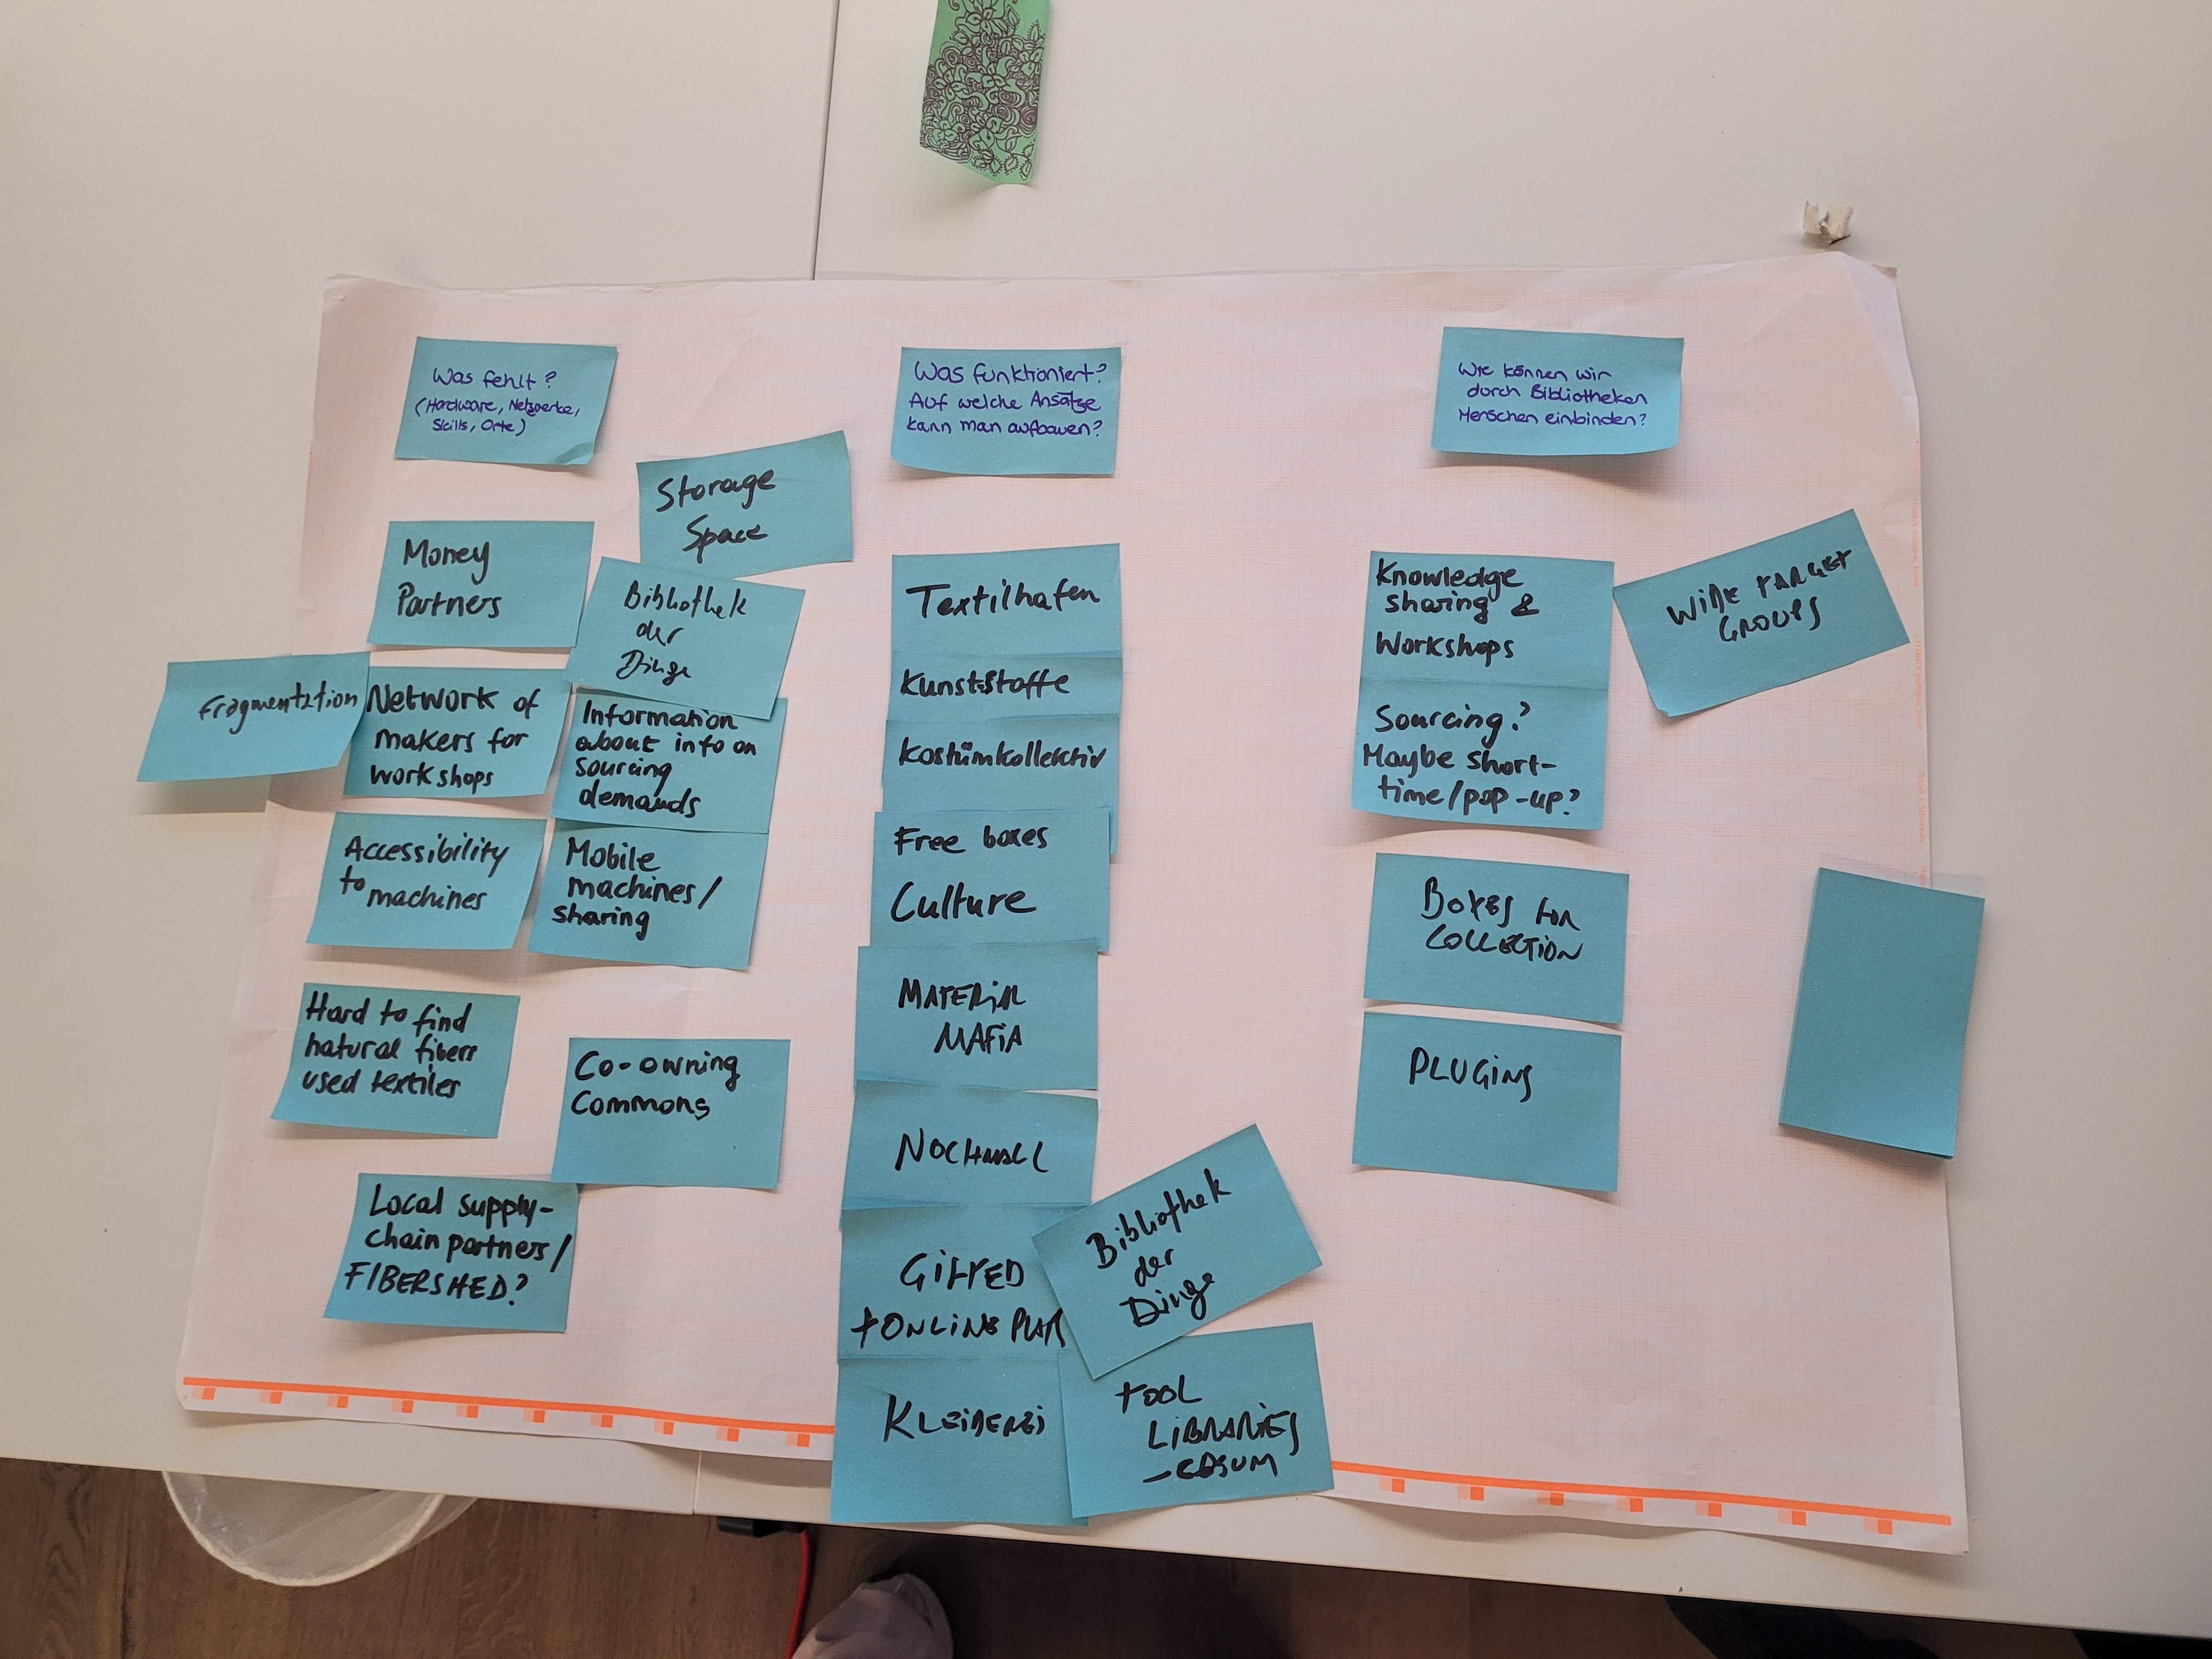 Was fehlt?
(Hardware, Netzwerke,
Skills, Orte)
Storage
Space
Money
Partners
Bibliothek
der
Dinge
Fragmentation
Network of
makers for
workshops
Information
about info on
sourcing
demands
Accessibility
to machines
Mobile
machines/
sharing
Hard to find
natural fibers
used textiles
Co-owning
Commons
Local supply-
chain partners/
FIBERSHED?
Was funktioniert?
Auf welche Ansätze
kann man aufbauen?
Textilhafen
Kunststoffe
Kostümkollektiv
Free boxes
Culture
MATERIAL
MAFIA
NOCHMALL
GIFTED
+ONLINE PLAT
Bibliothek
der
Dinge
KLEIDEREI
TOOL
LIBRARIES
Wie können wir
durch Bibliotheken
Menschen einbinden?
Knowledge
sharing &
Workshops
WIDE TARGET
GROUPS
Sourcing?
Maybe short-
time/pop-up?
BOXES FOR
COLLECTION
PLUGINS